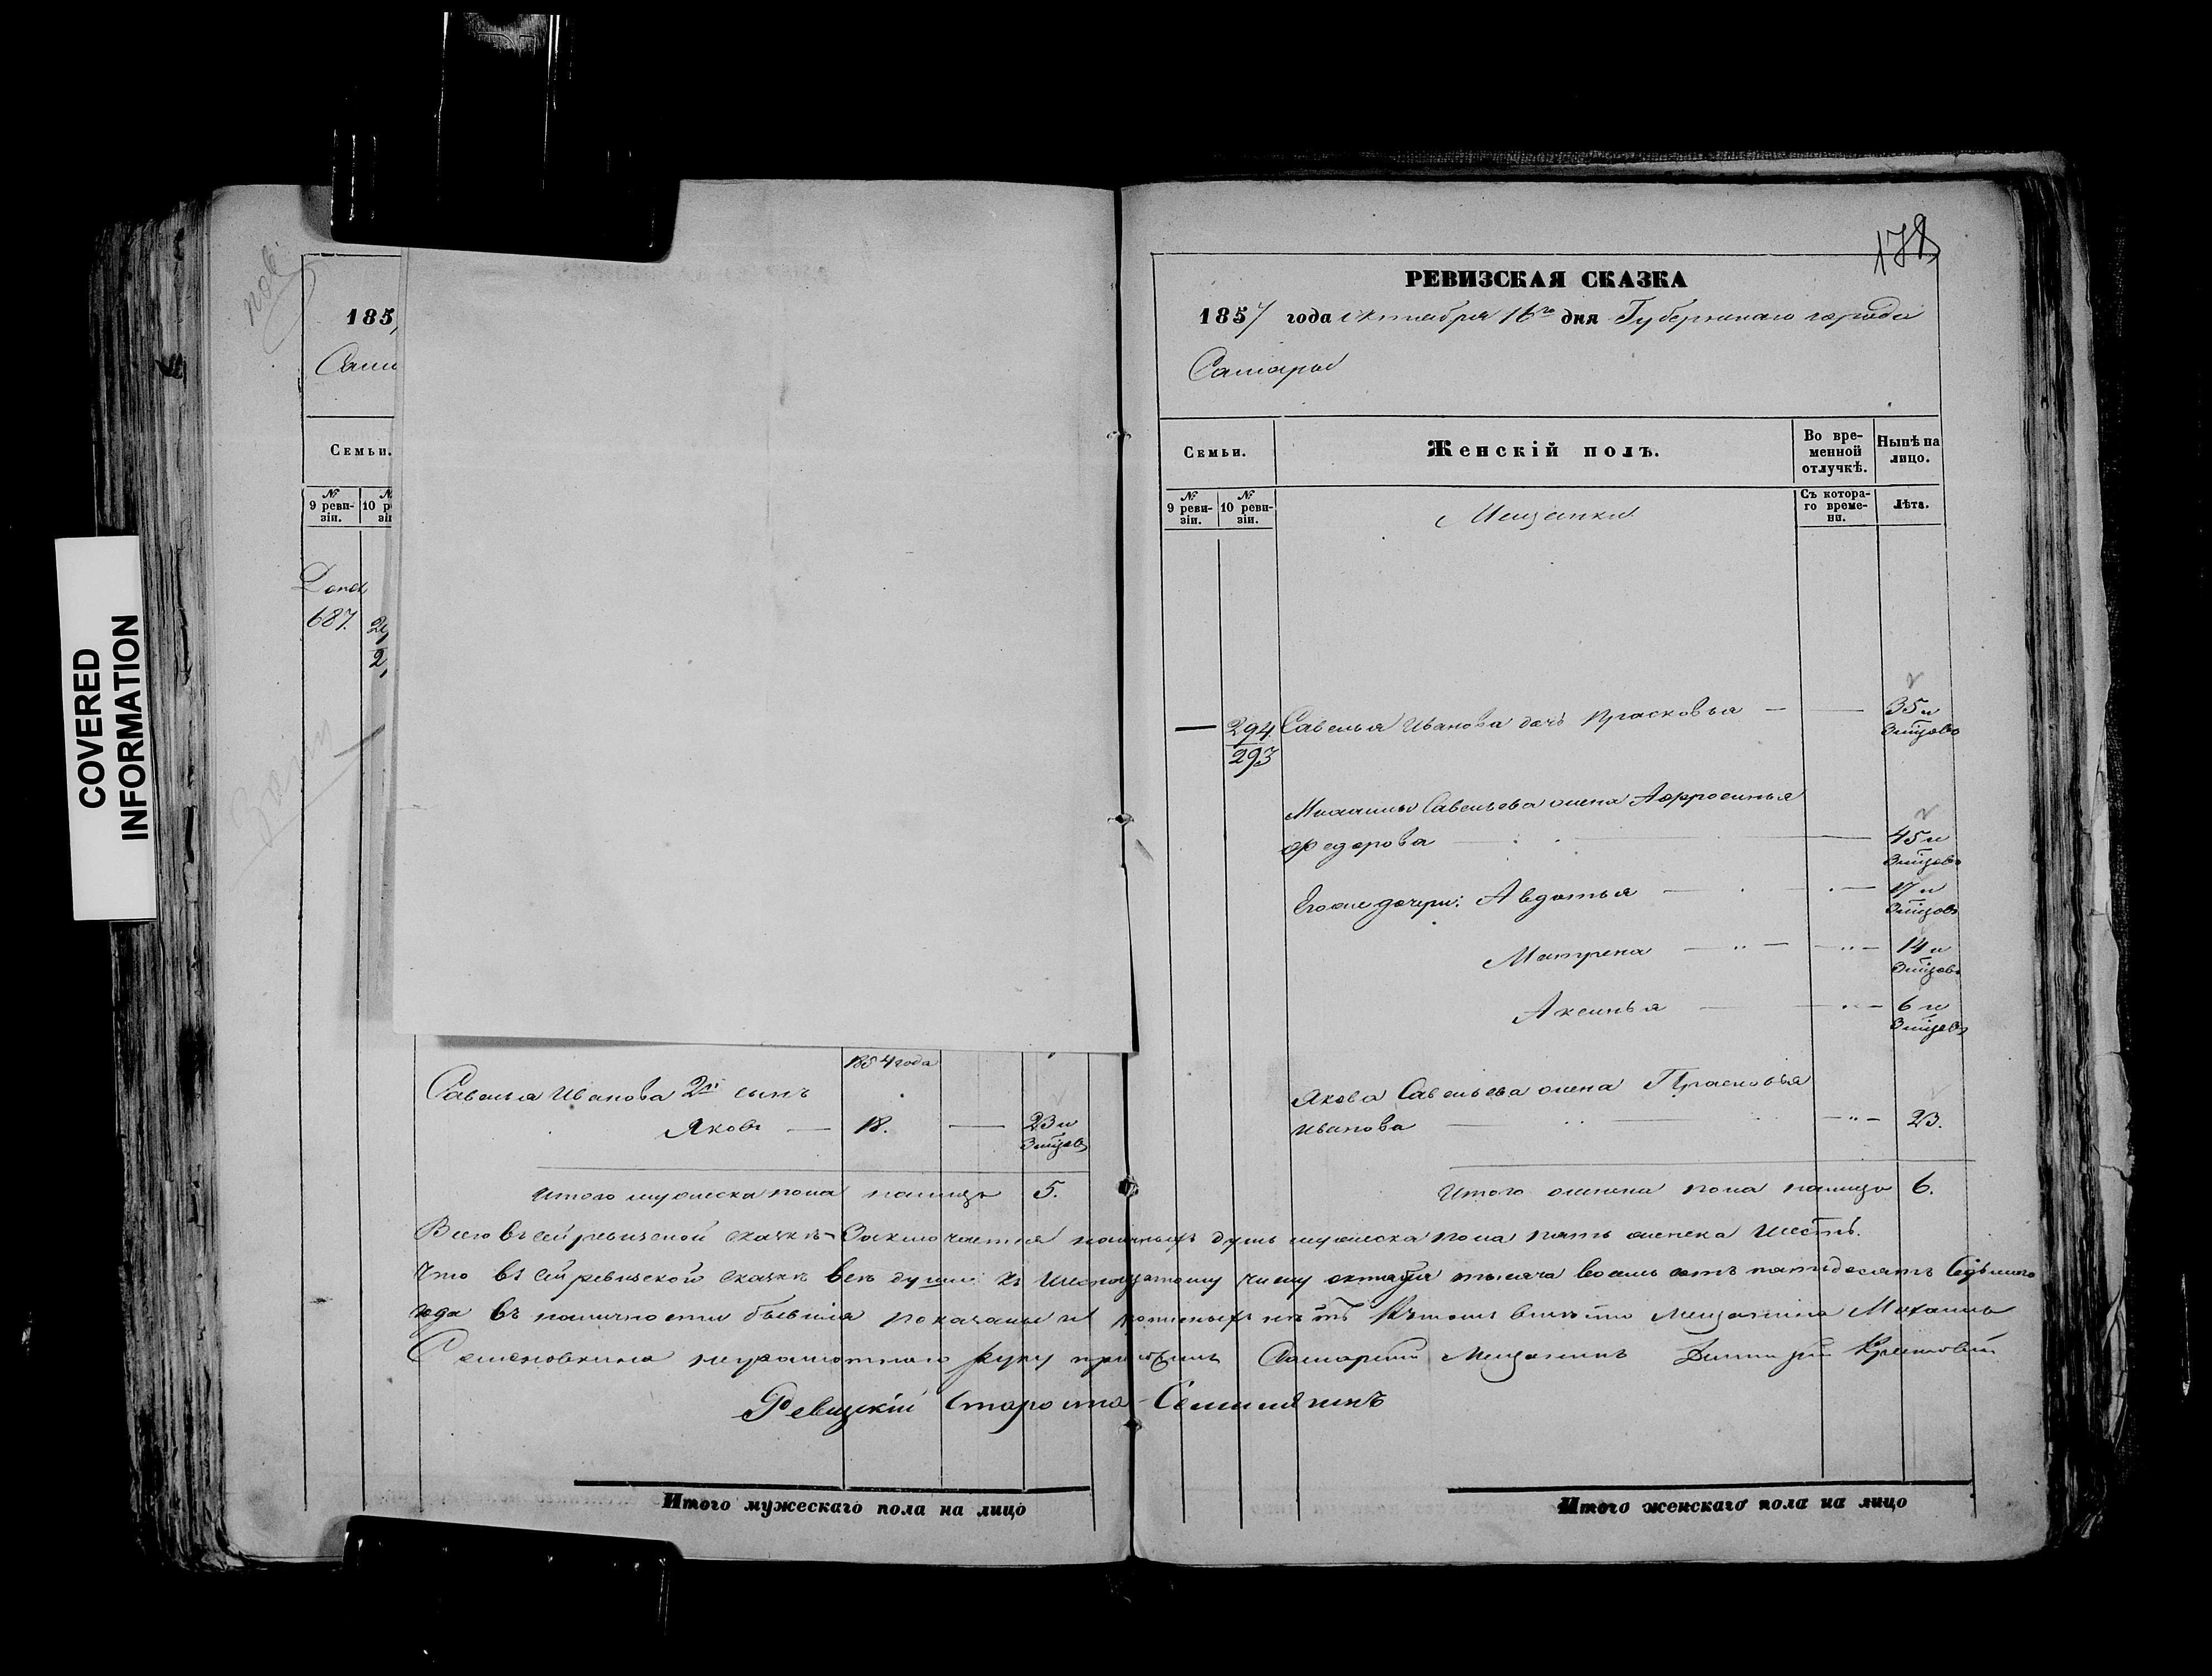 COVERED
INFORMATION
185
Сам
Семьи.
№ 9 реви-зіи.
687.
1854 года
Савелья Иванова 2й сынъ
Яковъ — 18. — 23 и
Итого мужеска пола налицо 5.
178
РЕВИЗСКАЯ СКАЗКА
1857 года октября 16го дня Губернскаго города
Самары
Семьи.
Женскій полъ.
Во вре-менной отлучкѣ.
Нынѣ на лицо.
№ 9 реви-зіи.
№ 10 реви-зіи.
Мещанки
Съ котора-го време-ни.
Лѣта.
294
293
Савелья Иванова дочь Прасковья — 35 и
Михаилы Савельева жена Афросинья
Федорова — 45 и
Егоже дочери: Авдотья — 17 и
Матрена — 14 и
Аксинья — 6 и
Якова Савельева жена Прасковья
Иванова — 23.
Итого женска пола налицо 6.
Всего въ сей ревизской сказкѣ заключается наличныхъ душъ мужеска пола пять женска шесть.
Что въ сей ревизской сказкѣ всѣ души къ шестнадцатому числу октября тысяча восемь сотъ пятьдесятъ седьмого
года въ наличности бывшія показаны и прописныхъ нѣтъ въ томъ вмѣсто Мещанина Михаила
неграмотнаго руку приложилъ Самарскій Мещанинъ Дмитрій
Ревизскій Староста
Итого мужескаго пола на лицо
Итого женскаго пола на лицо